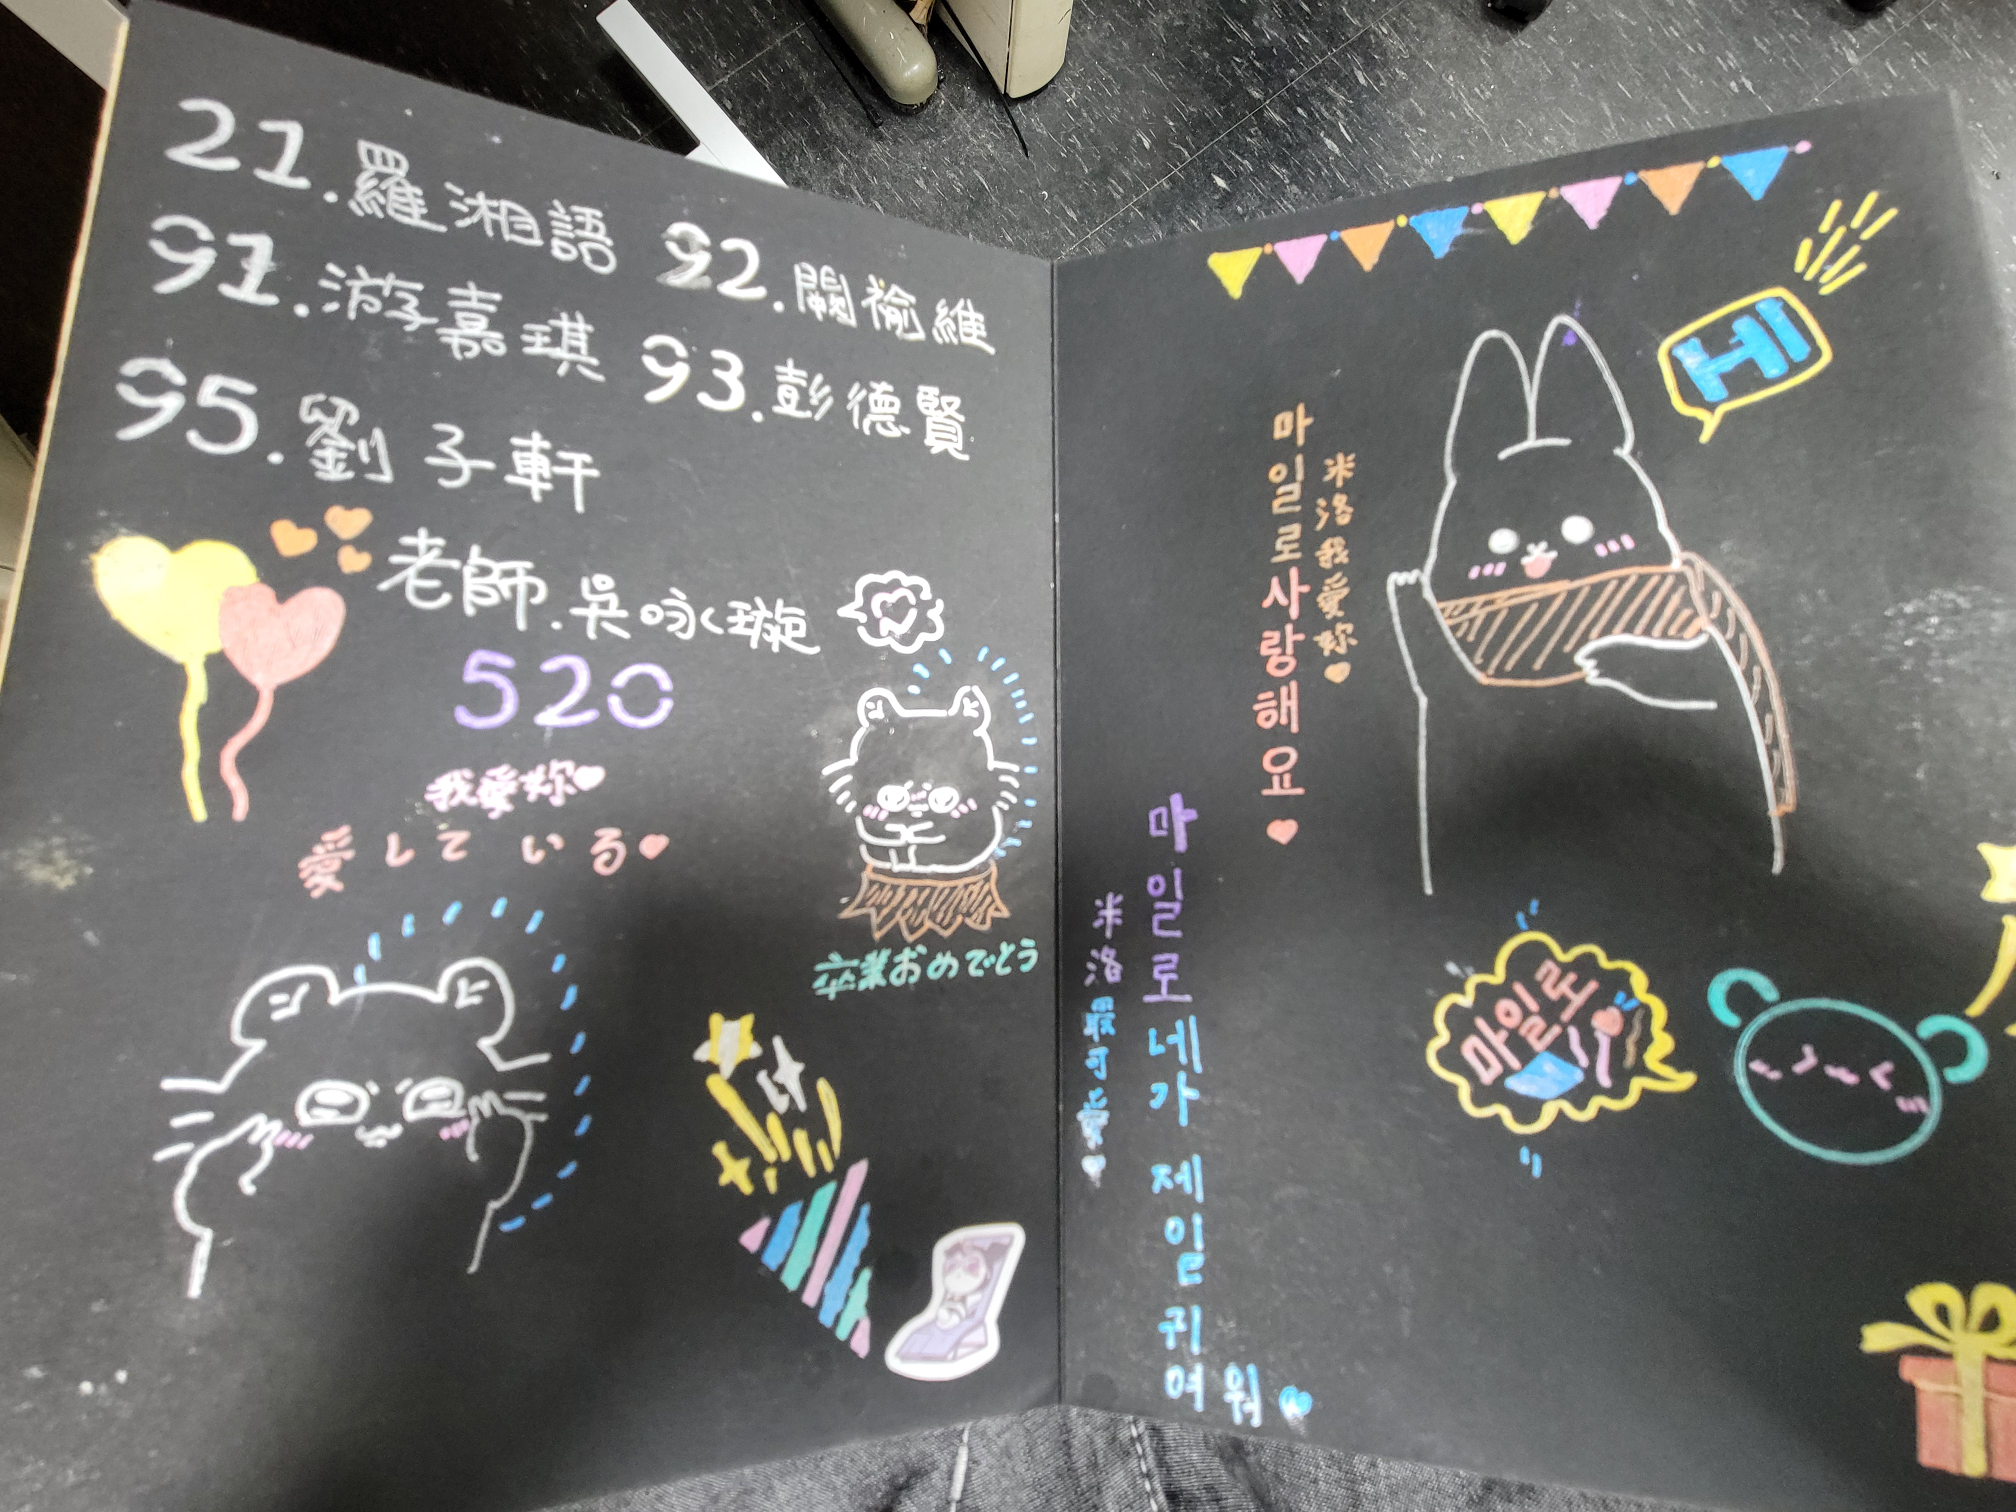 21.羅湘語
92.闕褕維
91.游嘉琪
93.彭德賢
95.劉子軒
老師.吳咏璇
520
我愛妳
愛している
卒業おめでとう
마일로사랑해요
米洛我愛妳
마일로네가 제일 귀여워
米洛最可愛
마일로